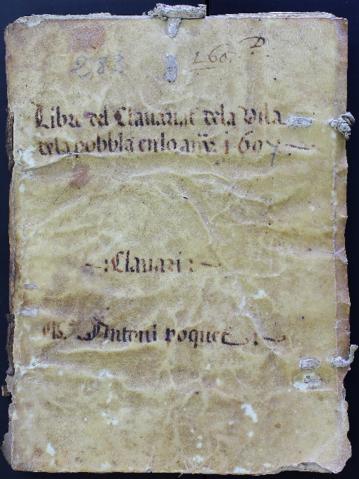 283 260 P.
Libre del Clavariat dela Vila
dela pobbla en lo any 1607
Clavari:
Ms. Antoni roquet